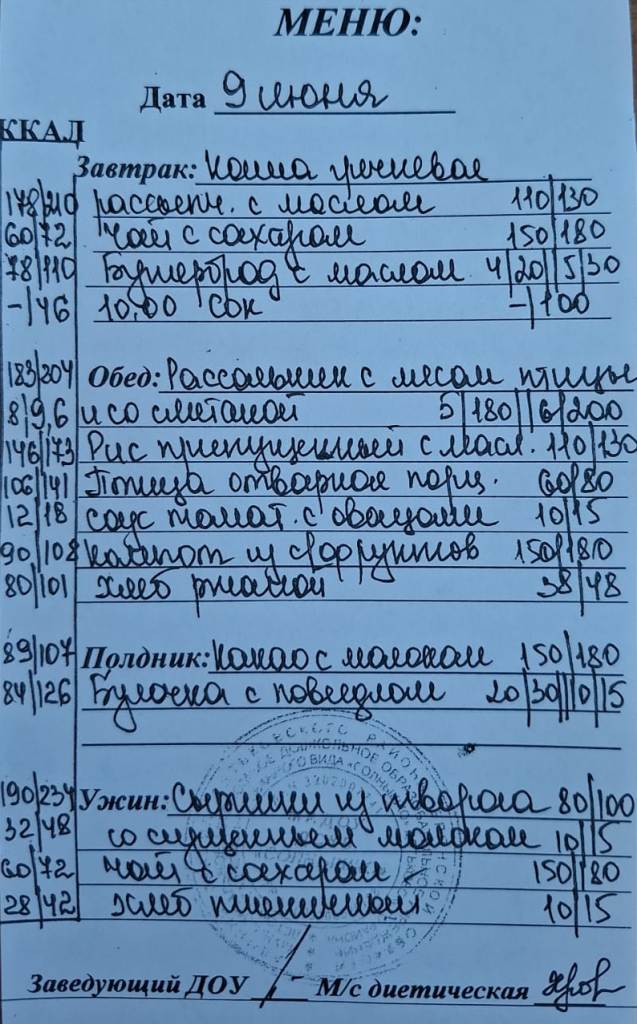 МЕНЮ:
Дата 9 июня
ККАД
Завтрак: Каша гречневая
178/210 рассыпч. с маслом 110/130
60/72 Чай с сахаром 150/180
78/110 Бутерброд с маслом 4/20//5/30
-/46 10.00 Сок -/100
183/204 Обед: Рассольник с мясом птицы
8/9,6 и со сметаной 5/180//6/200
146/173 Рис припущенный с масл. 110/130
106/141 Птица отварная порц. 60/80
12/18 соус томат. с овощами 10/15
90/108 компот из с/фруктов 150/180
80/101 хлеб ржаной 38/48
89/107 Полдник: Какао с молоком 150/180
84/126 Булочка с повидлом 20/30//10/15
190/234 Ужин: Сырники из творога 80/100
32/48 со сгущенным молоком 10/15
60/72 Чай с сахаром 150/180
28/42 хлеб пшеничный 10/15
Заведующий ДОУ М/с диетическая